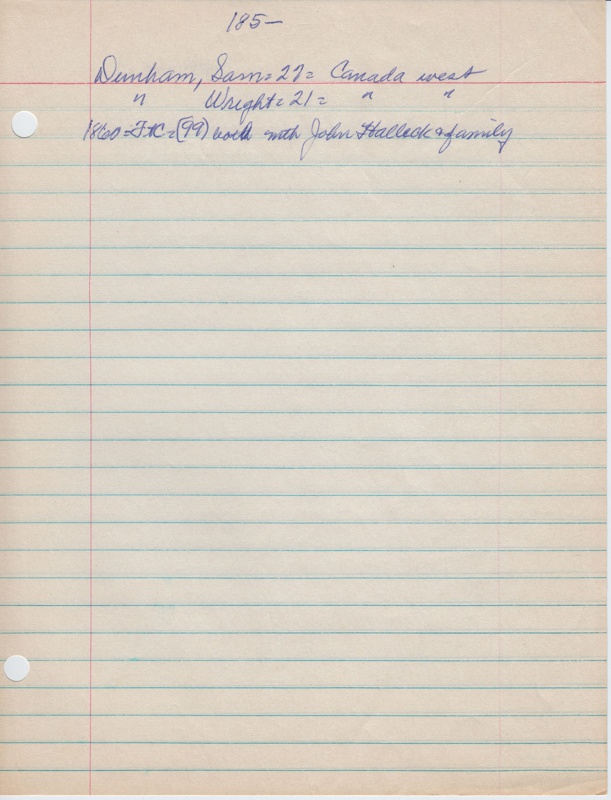 185-
Dunham, Sam = 27 = Canada west
" Wright = 21 = " "
1860 = (99) with John Hallock & family